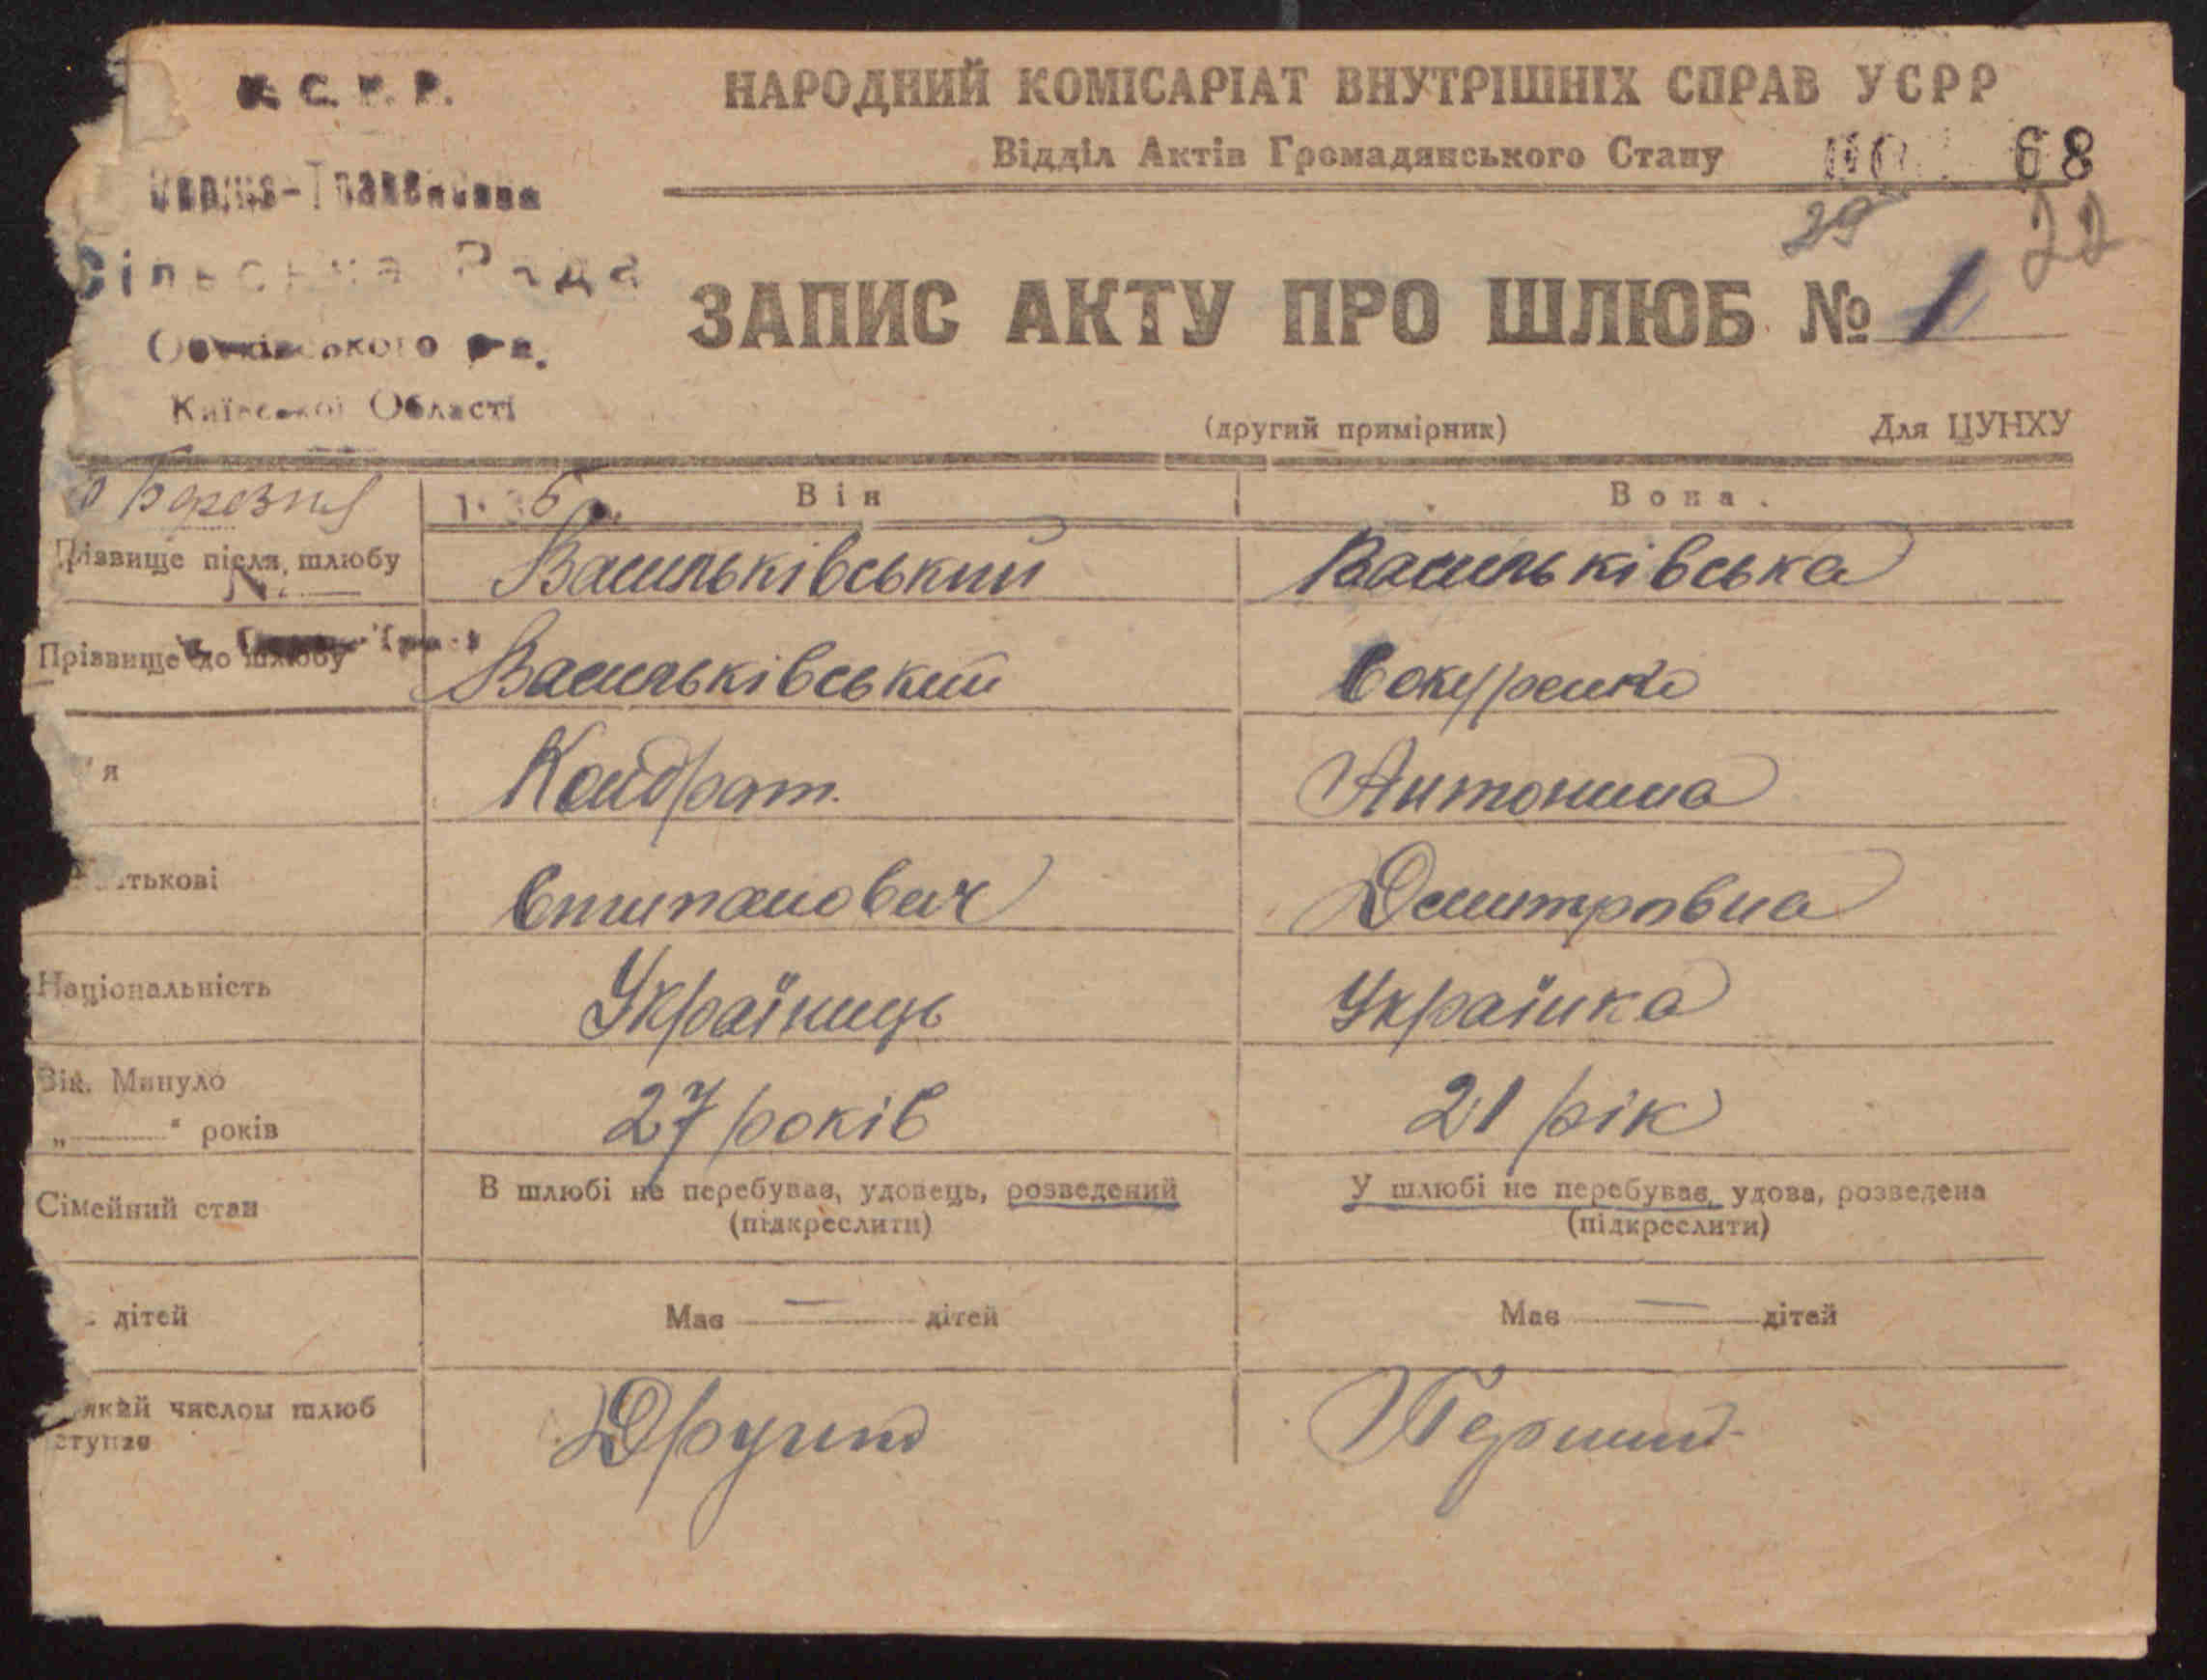 У. С. Р. Р.
НАРОДНИЙ КОМІСАРІАТ ВНУТРІШНІХ СПРАВ УСРР
Відділ Актів Громадянського Стану
68
29 22
Сільська Рада
ЗАПИС АКТУ ПРО ШЛЮБ № 1
Київської Області
(другий примірник) Для ЦУНХУ
Березня
Він Вона
Прізвище після шлюбу Васильківський Васильківська
Прізвище до шлюбу Васильківський Сокуренко
'я Кондрат Антонина
тькові Стипанович Демитровна
Національність Україниць Українка
Вік. Минуло
„ “ років 27 років 21 рік
Сімейний стан В шлюбі не перебував, удовець, розведений У шлюбі не перебуває, удова, розведена
(підкреслити) (підкреслити)
дітей Має — дітей Має — дітей
який числом шлюб
ступає Другий Перший